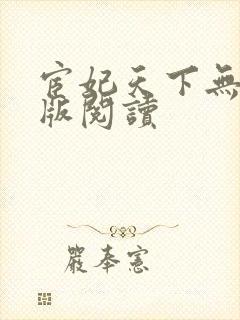 宦妃天下無
版閱讀
嚴奉憲